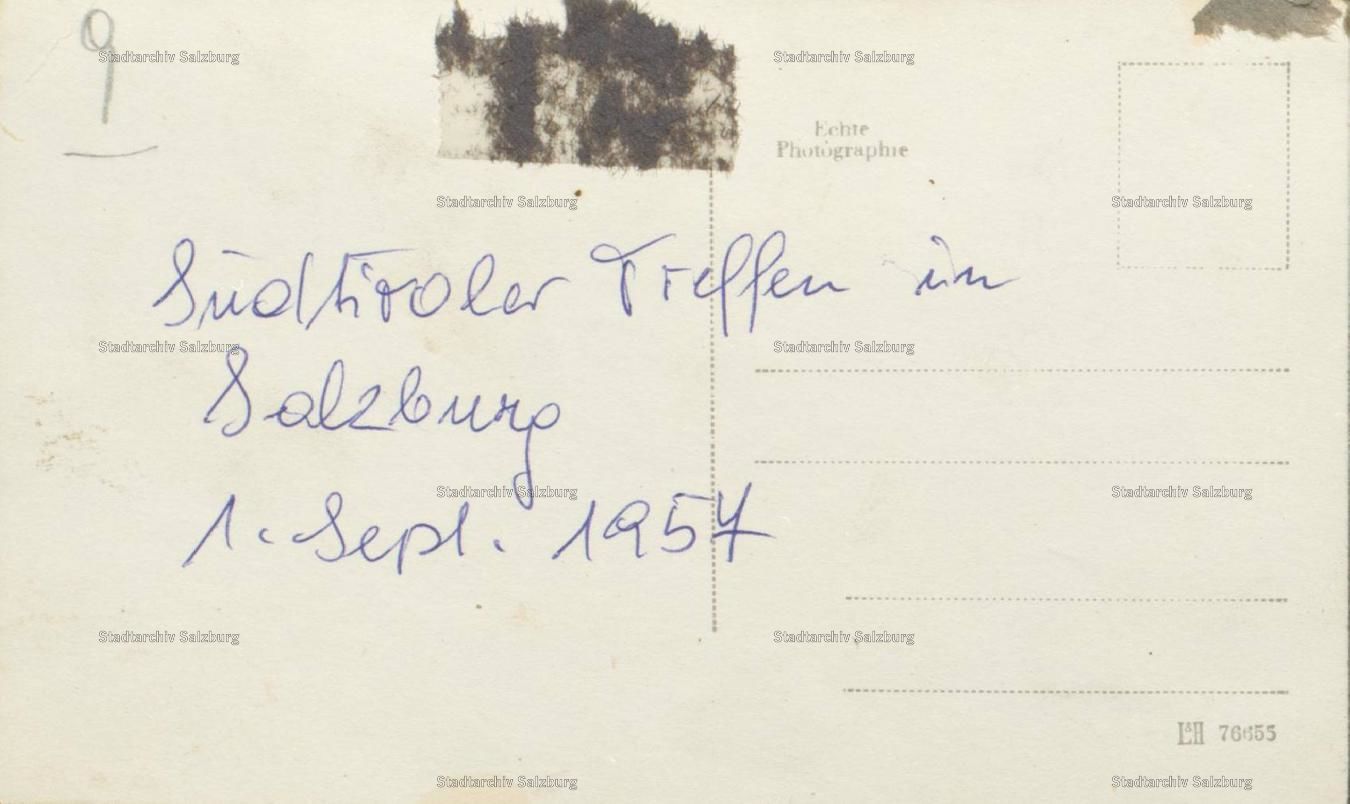 9
Echte
Photographie
Südtiroler Treffen in
Salzburg
1. Sept. 1957
L&H 76655
Stadtarchiv Salzburg Stadtarchiv Salzburg
Stadtarchiv Salzburg Stadtarchiv Salzburg
Stadtarchiv Salzburg Stadtarchiv Salzburg
Stadtarchiv Salzburg Stadtarchiv Salzburg
Stadtarchiv Salzburg Stadtarchiv Salzburg
Stadtarchiv Salzburg Stadtarchiv Salzburg